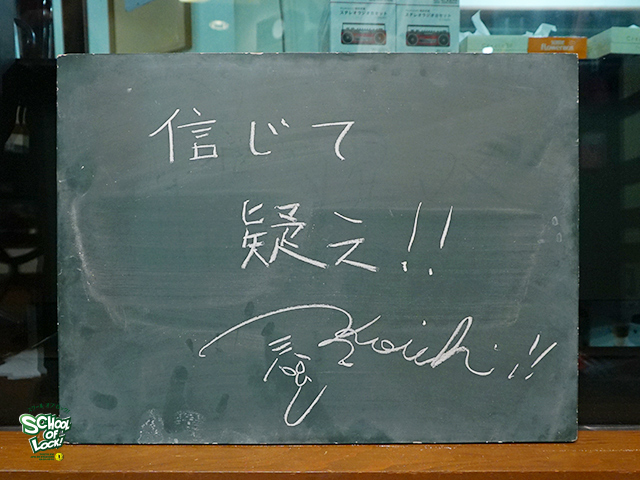 信じて
疑え!!
Koichi!!
SCHOOL
OF
LOCK!